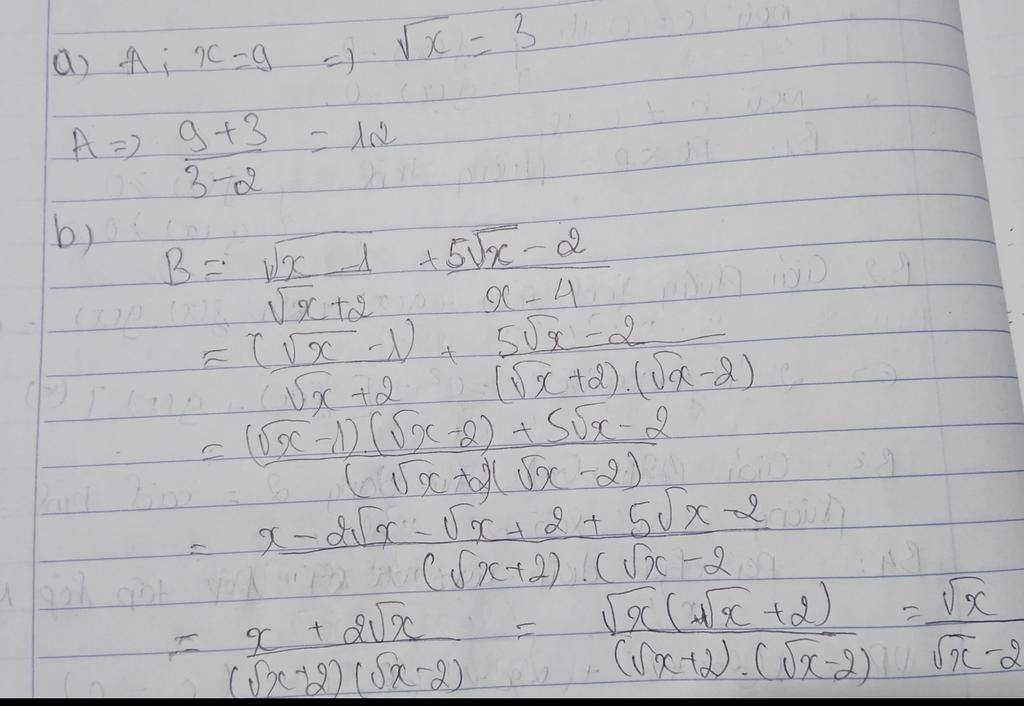 a) A ; x = 9 => √x = 3
A => (9+3)/(3-2) = 12
b)
B = (√x - 1)/(√x+2) + (5√x - 2)/(x - 4)
= (√x - 1)/(√x + 2) + (5√x - 2)/((√x+2).(√x-2))
= ((√x - 1).(√x-2) + 5√x - 2)/((√x+2)(√x-2))
= (x - 2√x - √x + 2 + 5√x - 2)/((√x+2).(√x-2
= (x + 2√x)/((√x+2)(√x-2)) = (√x(√x+2))/((√x+2).(√x-2)) = √x/(√x-2)